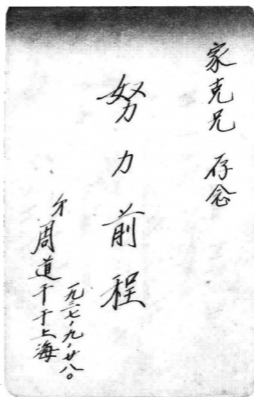 家克兄 存念
努力前程
弟周道干于上海
一九三七·九·廿八。